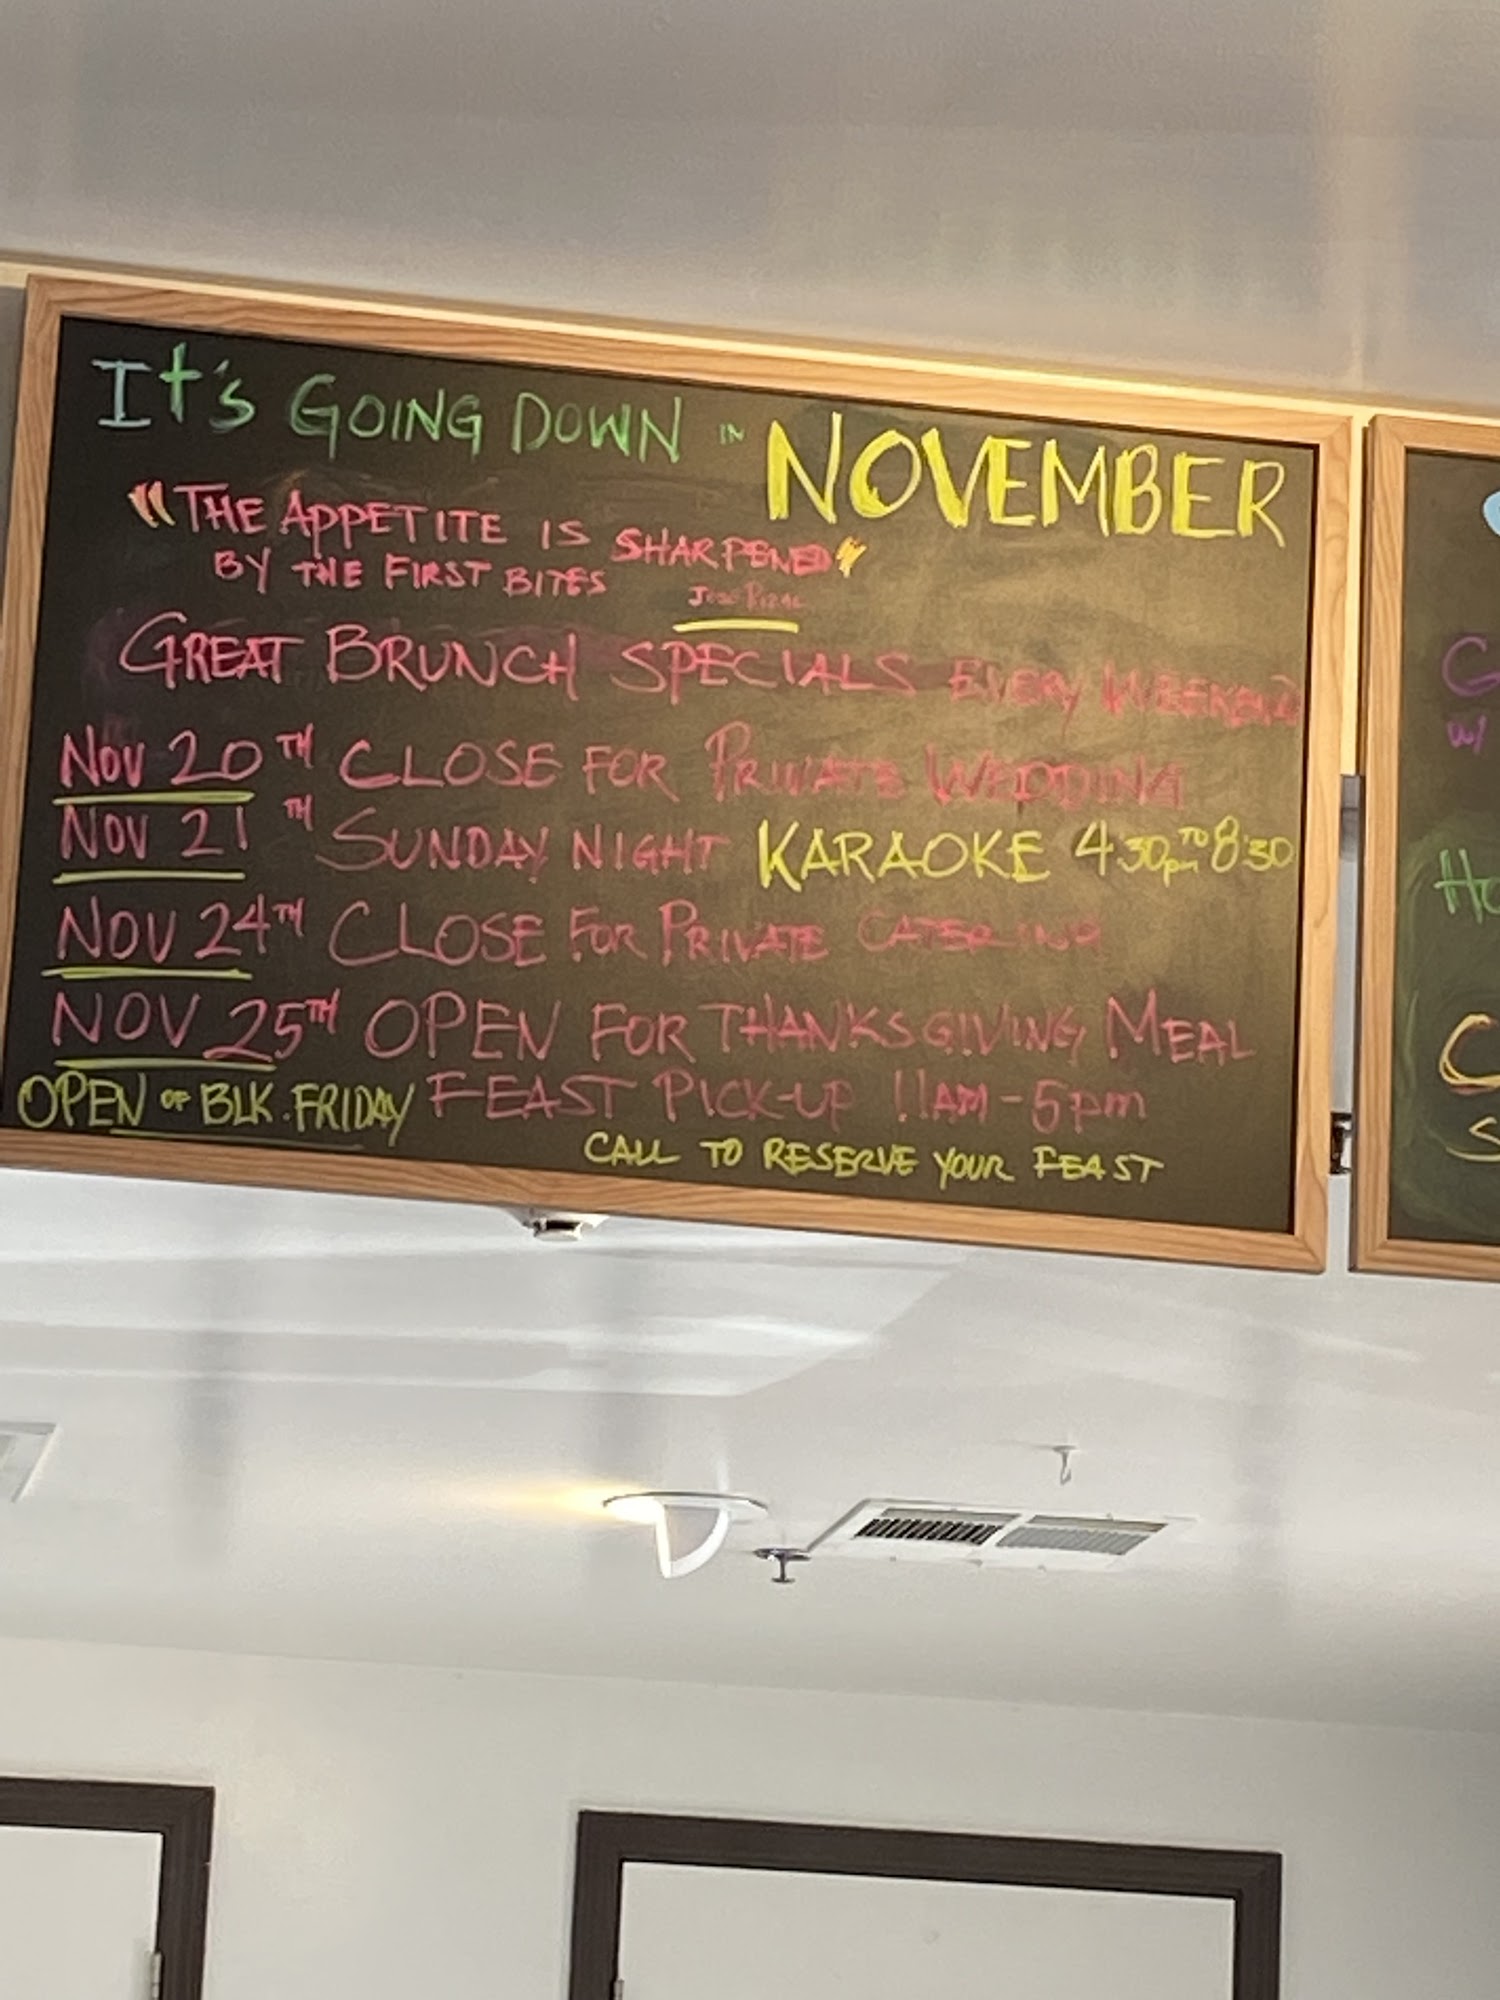 It's GOING DOWN IN NOVEMBER
"THE APPETITE IS SHARPENED"
BY THE FIRST BITES
JOSE RIZAL
GREAT BRUNCH SPECIALS EVERY WEEKEND
NOV 20TH CLOSE FOR PRIVATE WEDDING
NOV 21TH SUNDAY NIGHT KARAOKE 4:30pm TO 8:30
NOV 24TH CLOSE FOR PRIVATE CATERING
NOV 25TH OPEN FOR THANKSGIVING MEAL
FEAST PICK-UP 11AM-5pm
OPEN OF BLK. FRIDAY
CALL TO RESERVE YOUR FEAST
w/